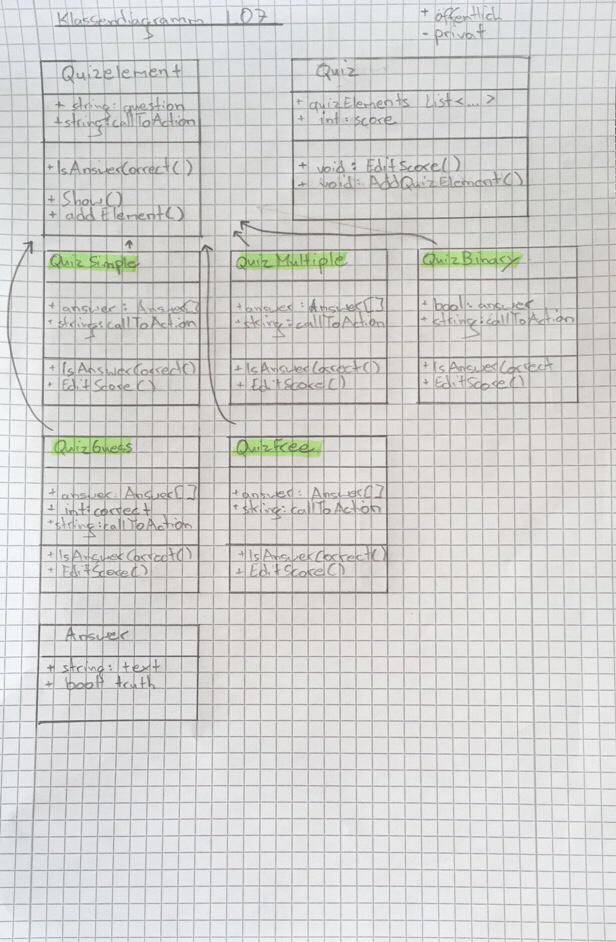 Klassendiagramm L07
+ öffentlich
- privat
Quizelement
+ string: question
+ string: callToAction
+ IsAnswerCorrect()
+ Show()
+ addElement()
Quiz
+ quizElements List<...>
+ int: score
+ void: EditScore()
+ void: AddQuizElement()
QuizSimple
+ answer: Answer[]
+ string: callToAction
+ IsAnswerCorrect()
+ EditScore()
QuizMultiple
+ answer: Answer[]
+ string: callToAction
+ IsAnswerCorrect()
+ EditScore()
QuizBinary
+ bool: answer
+ string: callToAction
+ IsAnswerCorrect
+ EditScore()
QuizGuess
+ answer: Answer[]
+ int: correct
+ string: callToAction
+ IsAnswerCorrect()
+ EditScore()
QuizFree
+ answer: Answer[]
+ string: callToAction
+ IsAnswerCorrect()
+ EditScore()
Answer
+ string: text
+ bool: truth